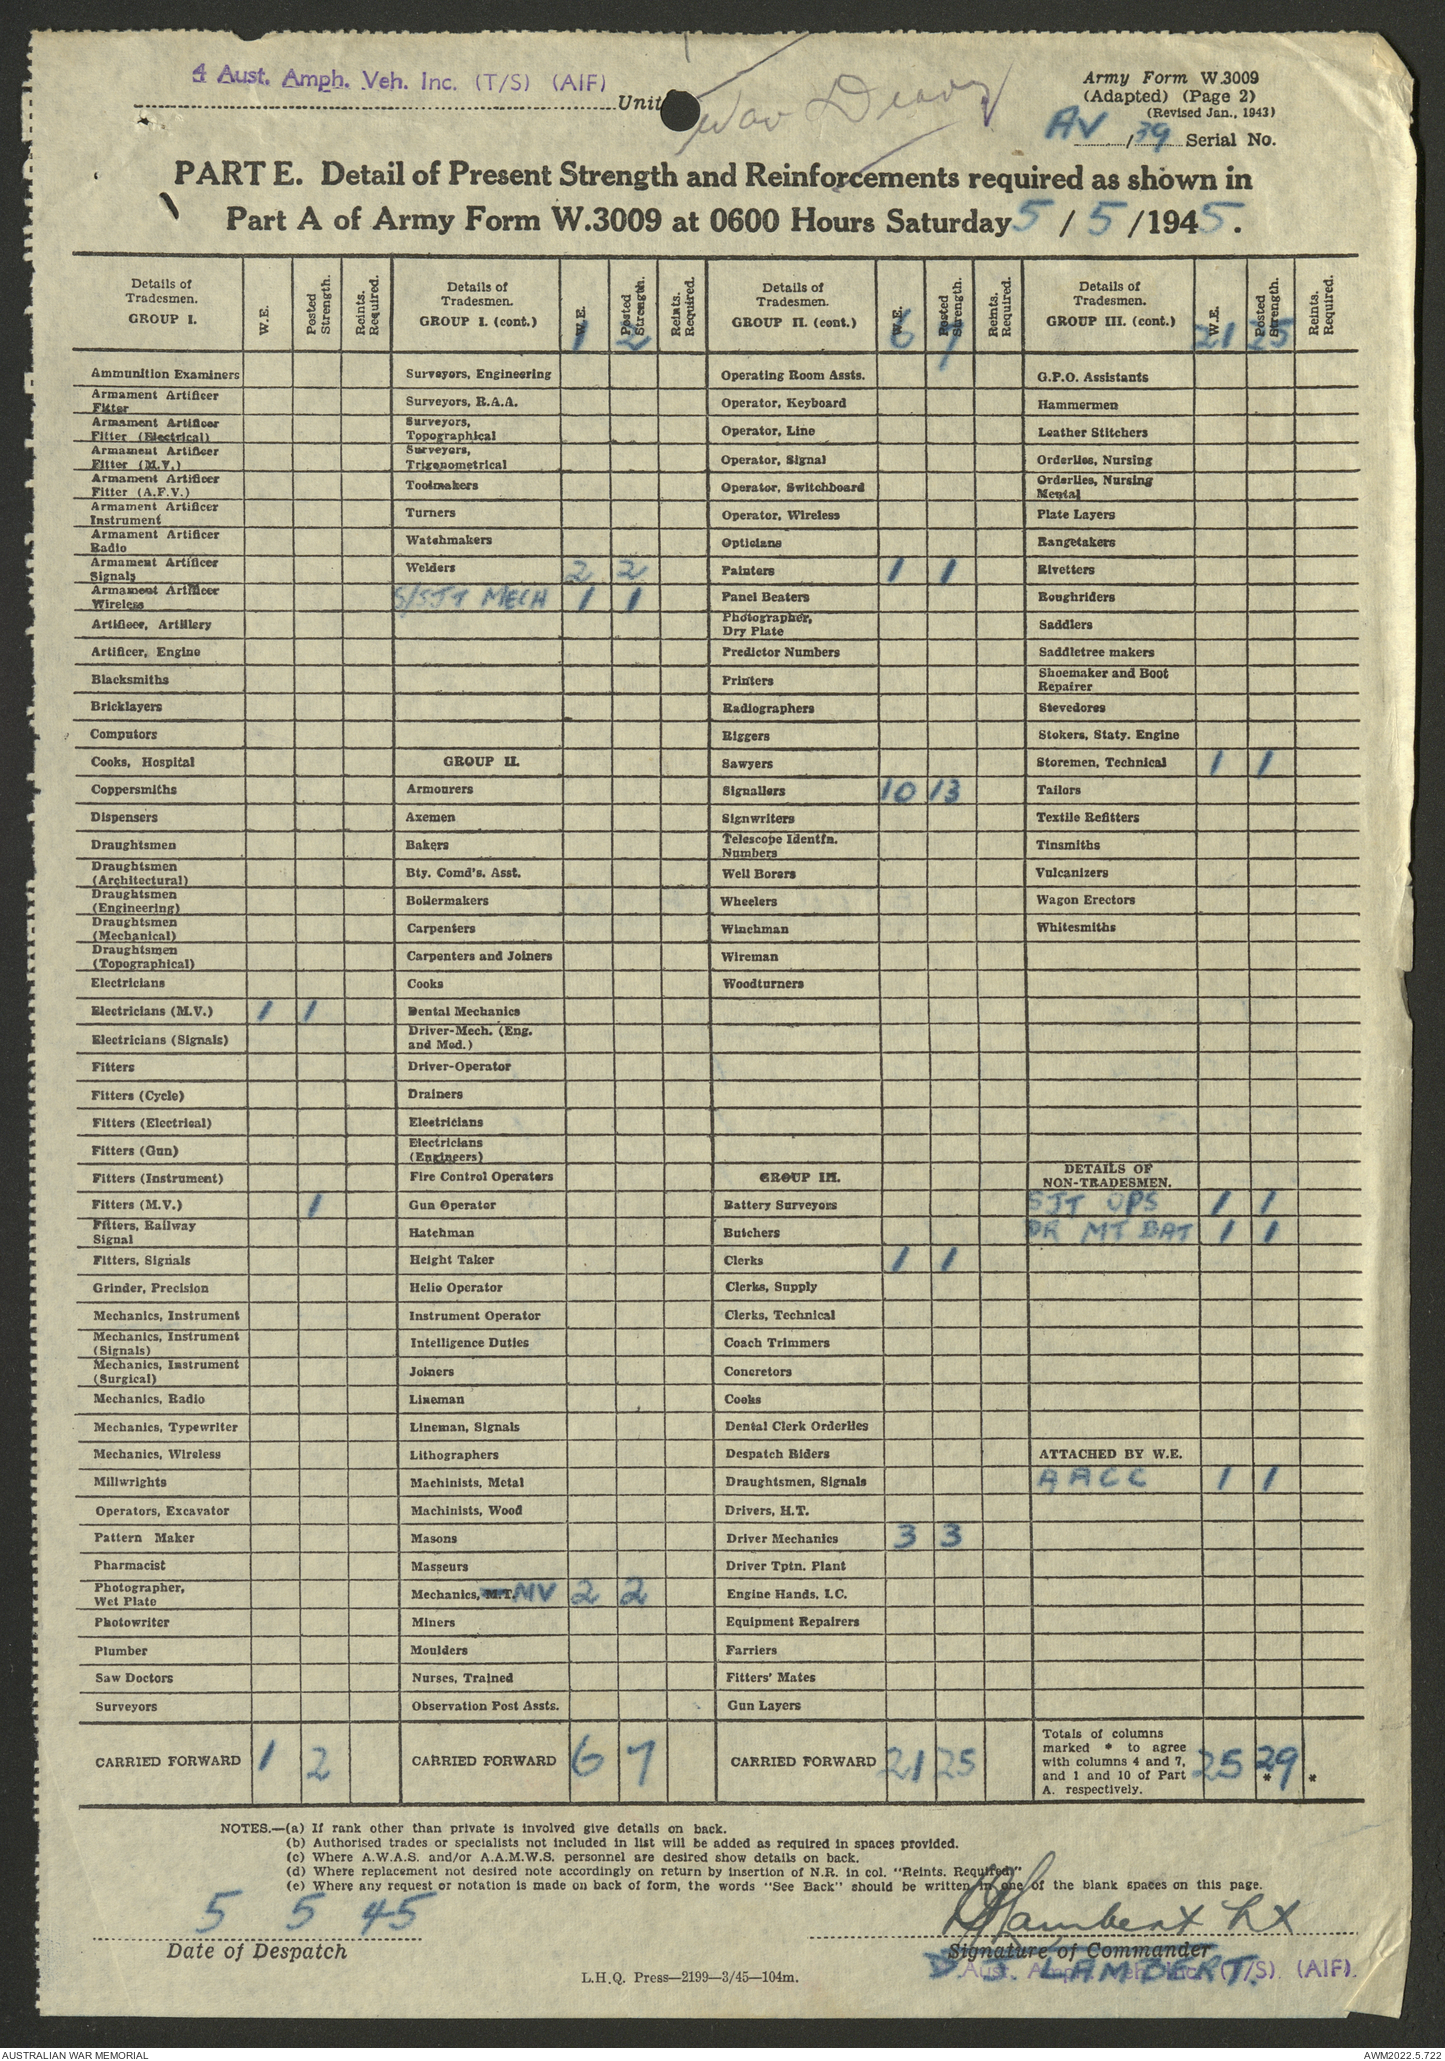 4 Aust. Amph. Veh. Inc. (T/S) (AIF)
Unit
War Diary
Army Form W.3009
(Adapted) (Page 2)
(Revised Jan., 1943)
AV/39 Serial No.
PART E. Detail of Present Strength and Reinforcements required as shown in
Part A of Army Form W.3009 at 0600 Hours Saturday 5 / 5 /1945.
Details of Tradesmen. GROUP I. W.E. Posted Strength. Reints. Required.
Ammunition Examiners
Armament Artificer Fitter
Armament Artificer Fitter (Electrical)
Armament Artificer Fitter (M.V.)
Armament Artificer Fitter (A.F.V.)
Armament Artificer Instrument
Armament Artificer Radio
Armament Artificer Signals
Armament Artificer Wireless
Artificer, Artillery
Artificer, Engine
Blacksmiths
Bricklayers
Computors
Cooks, Hospital
Coppersmiths
Dispensers
Draughtsmen
Draughtsmen (Architectural)
Draughtsmen (Engineering)
Draughtsmen (Mechanical)
Draughtsmen (Topographical)
Electricians
Electricians (M.V.) 1 1
Electricians (Signals)
Fitters
Fitters (Cycle)
Fitters (Electrical)
Fitters (Gun)
Fitters (Instrument)
Fitters (M.V.) 1
Fitters, Railway Signal
Fitters, Signals
Grinder, Precision
Mechanics, Instrument
Mechanics, Instrument (Signals)
Mechanics, Instrument (Surgical)
Mechanics, Radio
Mechanics, Typewriter
Mechanics, Wireless
Millwrights
Operators, Excavator
Pattern Maker
Pharmacist
Photographer, Wet Plate
Photowriter
Plumber
Saw Doctors
Surveyors
CARRIED FORWARD 1 2
Details of Tradesmen. GROUP I. (cont.) W.E. 1 Posted Strength. 2 Reints. Required.
Surveyors, Engineering
Surveyors, R.A.A.
Surveyors, Topographical
Surveyors, Trigonometrical
Toolmakers
Turners
Watchmakers
Welders 2 2
S/SJT MECH 1 1
GROUP II.
Armourers
Axemen
Bakers
Bty. Comd's. Asst.
Boilermakers
Carpenters
Carpenters and Joiners
Cooks
Dental Mechanics
Driver-Mech. (Eng. and Med.)
Driver-Operator
Drainers
Electricians
Electricians (Engineers)
Fire Control Operators
Gun Operator
Hatchman
Height Taker
Helio Operator
Instrument Operator
Intelligence Duties
Joiners
Lineman
Lineman, Signals
Lithographers
Machinists, Metal
Machinists, Wood
Masons
Masseurs
Mechanics, M.T. MV 2 2
Miners
Moulders
Nurses, Trained
Observation Post Assts.
CARRIED FORWARD 6 7
Details of Tradesmen. GROUP II. (cont.) W.E. 6 Posted Strength. 7 Reints. Required.
Operating Room Assts.
Operator, Keyboard
Operator, Line
Operator, Signal
Operator, Switchboard
Operator, Wireless
Opticians
Painters 1 1
Panel Beaters
Photographer, Dry Plate
Predictor Numbers
Printers
Radiographers
Riggers
Sawyers
Signallers 10 13
Signwriters
Telescope Identfn. Numbers
Well Borers
Wheelers
Winchman
Wireman
Woodturners
GROUP III.
Battery Surveyors
Butchers
Clerks 1 1
Clerks, Supply
Clerks, Technical
Coach Trimmers
Concretors
Cooks
Dental Clerk Orderlies
Despatch Riders
Draughtsmen, Signals
Drivers, H.T.
Driver Mechanics 3 3
Driver Tptn. Plant
Engine Hands, I.C.
Equipment Repairers
Farriers
Fitters' Mates
Gun Layers
CARRIED FORWARD 21 25
Details of Tradesmen. GROUP III. (cont.) W.E. 21 Posted Strength. 25 Reints. Required.
G.P.O. Assistants
Hammermen
Leather Stitchers
Orderlies, Nursing
Orderlies, Nursing Mental
Plate Layers
Rangetakers
Rivetters
Roughriders
Saddlers
Saddletree makers
Shoemaker and Boot Repairer
Stevedores
Stokers, Staty. Engine
Storemen, Technical 1 1
Tailors
Textile Refitters
Tinsmiths
Vulcanizers
Wagon Erectors
Whitesmiths
DETAILS OF NON-TRADESMEN.
SJT OPS 1 1
DR MT BAT 1 1
ATTACHED BY W.E.
AACC 1 1
Totals of columns marked * to agree with columns 4 and 7, and 1 and 10 of Part A. respectively. 25 29 * *
NOTES.—(a) If rank other than private is involved give details on back.
(b) Authorised trades or specialists not included in list will be added as required in spaces provided.
(c) Where A.W.A.S. and/or A.A.M.W.S. personnel are desired show details on back.
(d) Where replacement not desired note accordingly on return by insertion of N.R. in col. "Reints. Required"
(e) Where any request or notation is made on back of form, the words "See Back" should be written in one of the blank spaces on this page.
5 5 45
Date of Despatch
DJ Lambert Lt
Signature of Commander
D J LAMBERT.
Aust. Amph. Veh. Inc. (T/S) (AIF).
L.H.Q. Press—2199—3/45—104m.
AUSTRALIAN WAR MEMORIAL
AWM2022.5.722